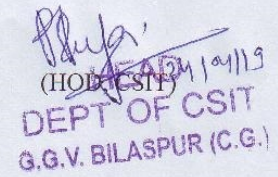 24/04/19
HEAD
(HOD, CSIT)
DEPT OF CSIT
G.G.V. BILASPUR (C.G.)